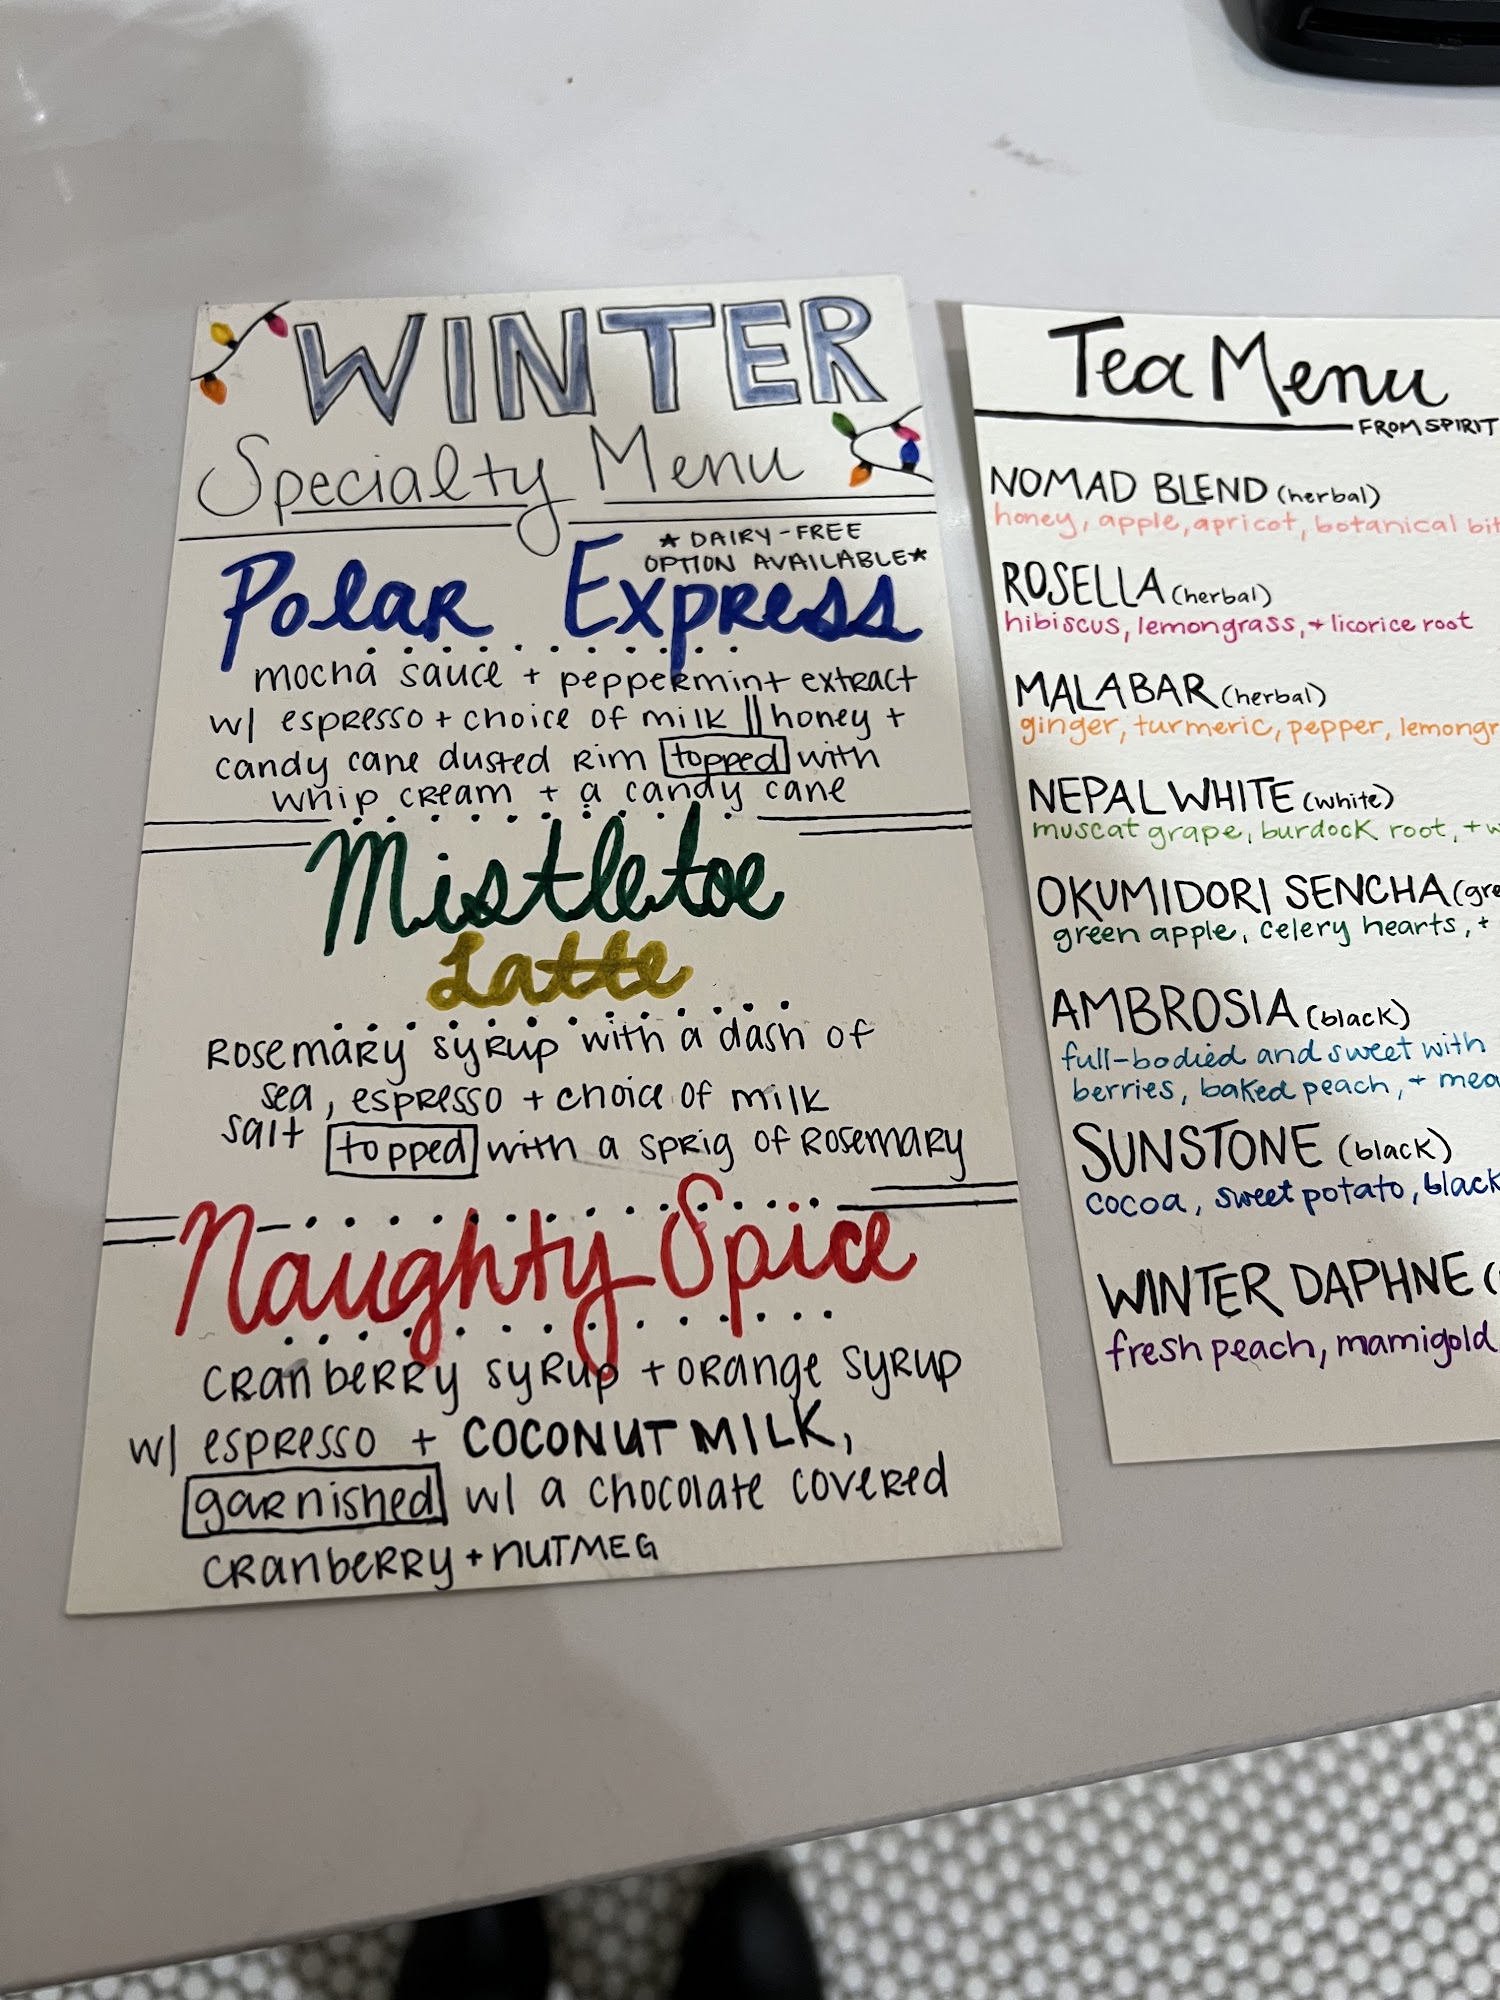 WINTER
Specialty Menu
* DAIRY-FREE
OPTION AVAILABLE*
Polar Express
mocha sauce + peppermint extract
w/ espresso + choice of milk || honey +
candy cane dusted rim topped with
whip cream + a candy cane
Mistletoe
Latte
Rosemary syrup with a dash of
sea , espresso + choice of milk
salt topped with a sprig of rosemary
Naughty Spice
cranberry syrup + orange syrup
w/ espresso + COCONUT MILK,
garnished w/ a chocolate covered
cranberry + nutmeg
Tea Menu
FROM SPIRIT
NOMAD BLEND (herbal)
honey, apple, apricot, botanical bit
ROSELLA (herbal)
hibiscus, lemongrass, + licorice root
MALABAR (herbal)
ginger, turmeric, pepper, lemongr
NEPAL WHITE (white)
muscat grape, burdock root, + w
OKUMIDORI SENCHA (gre
green apple, celery hearts, +
AMBROSIA (black)
full-bodied and sweet with
berries, baked peach, + mea
SUNSTONE (black)
cocoa, sweet potato, black
WINTER DAPHNE (
fresh peach, mamigold